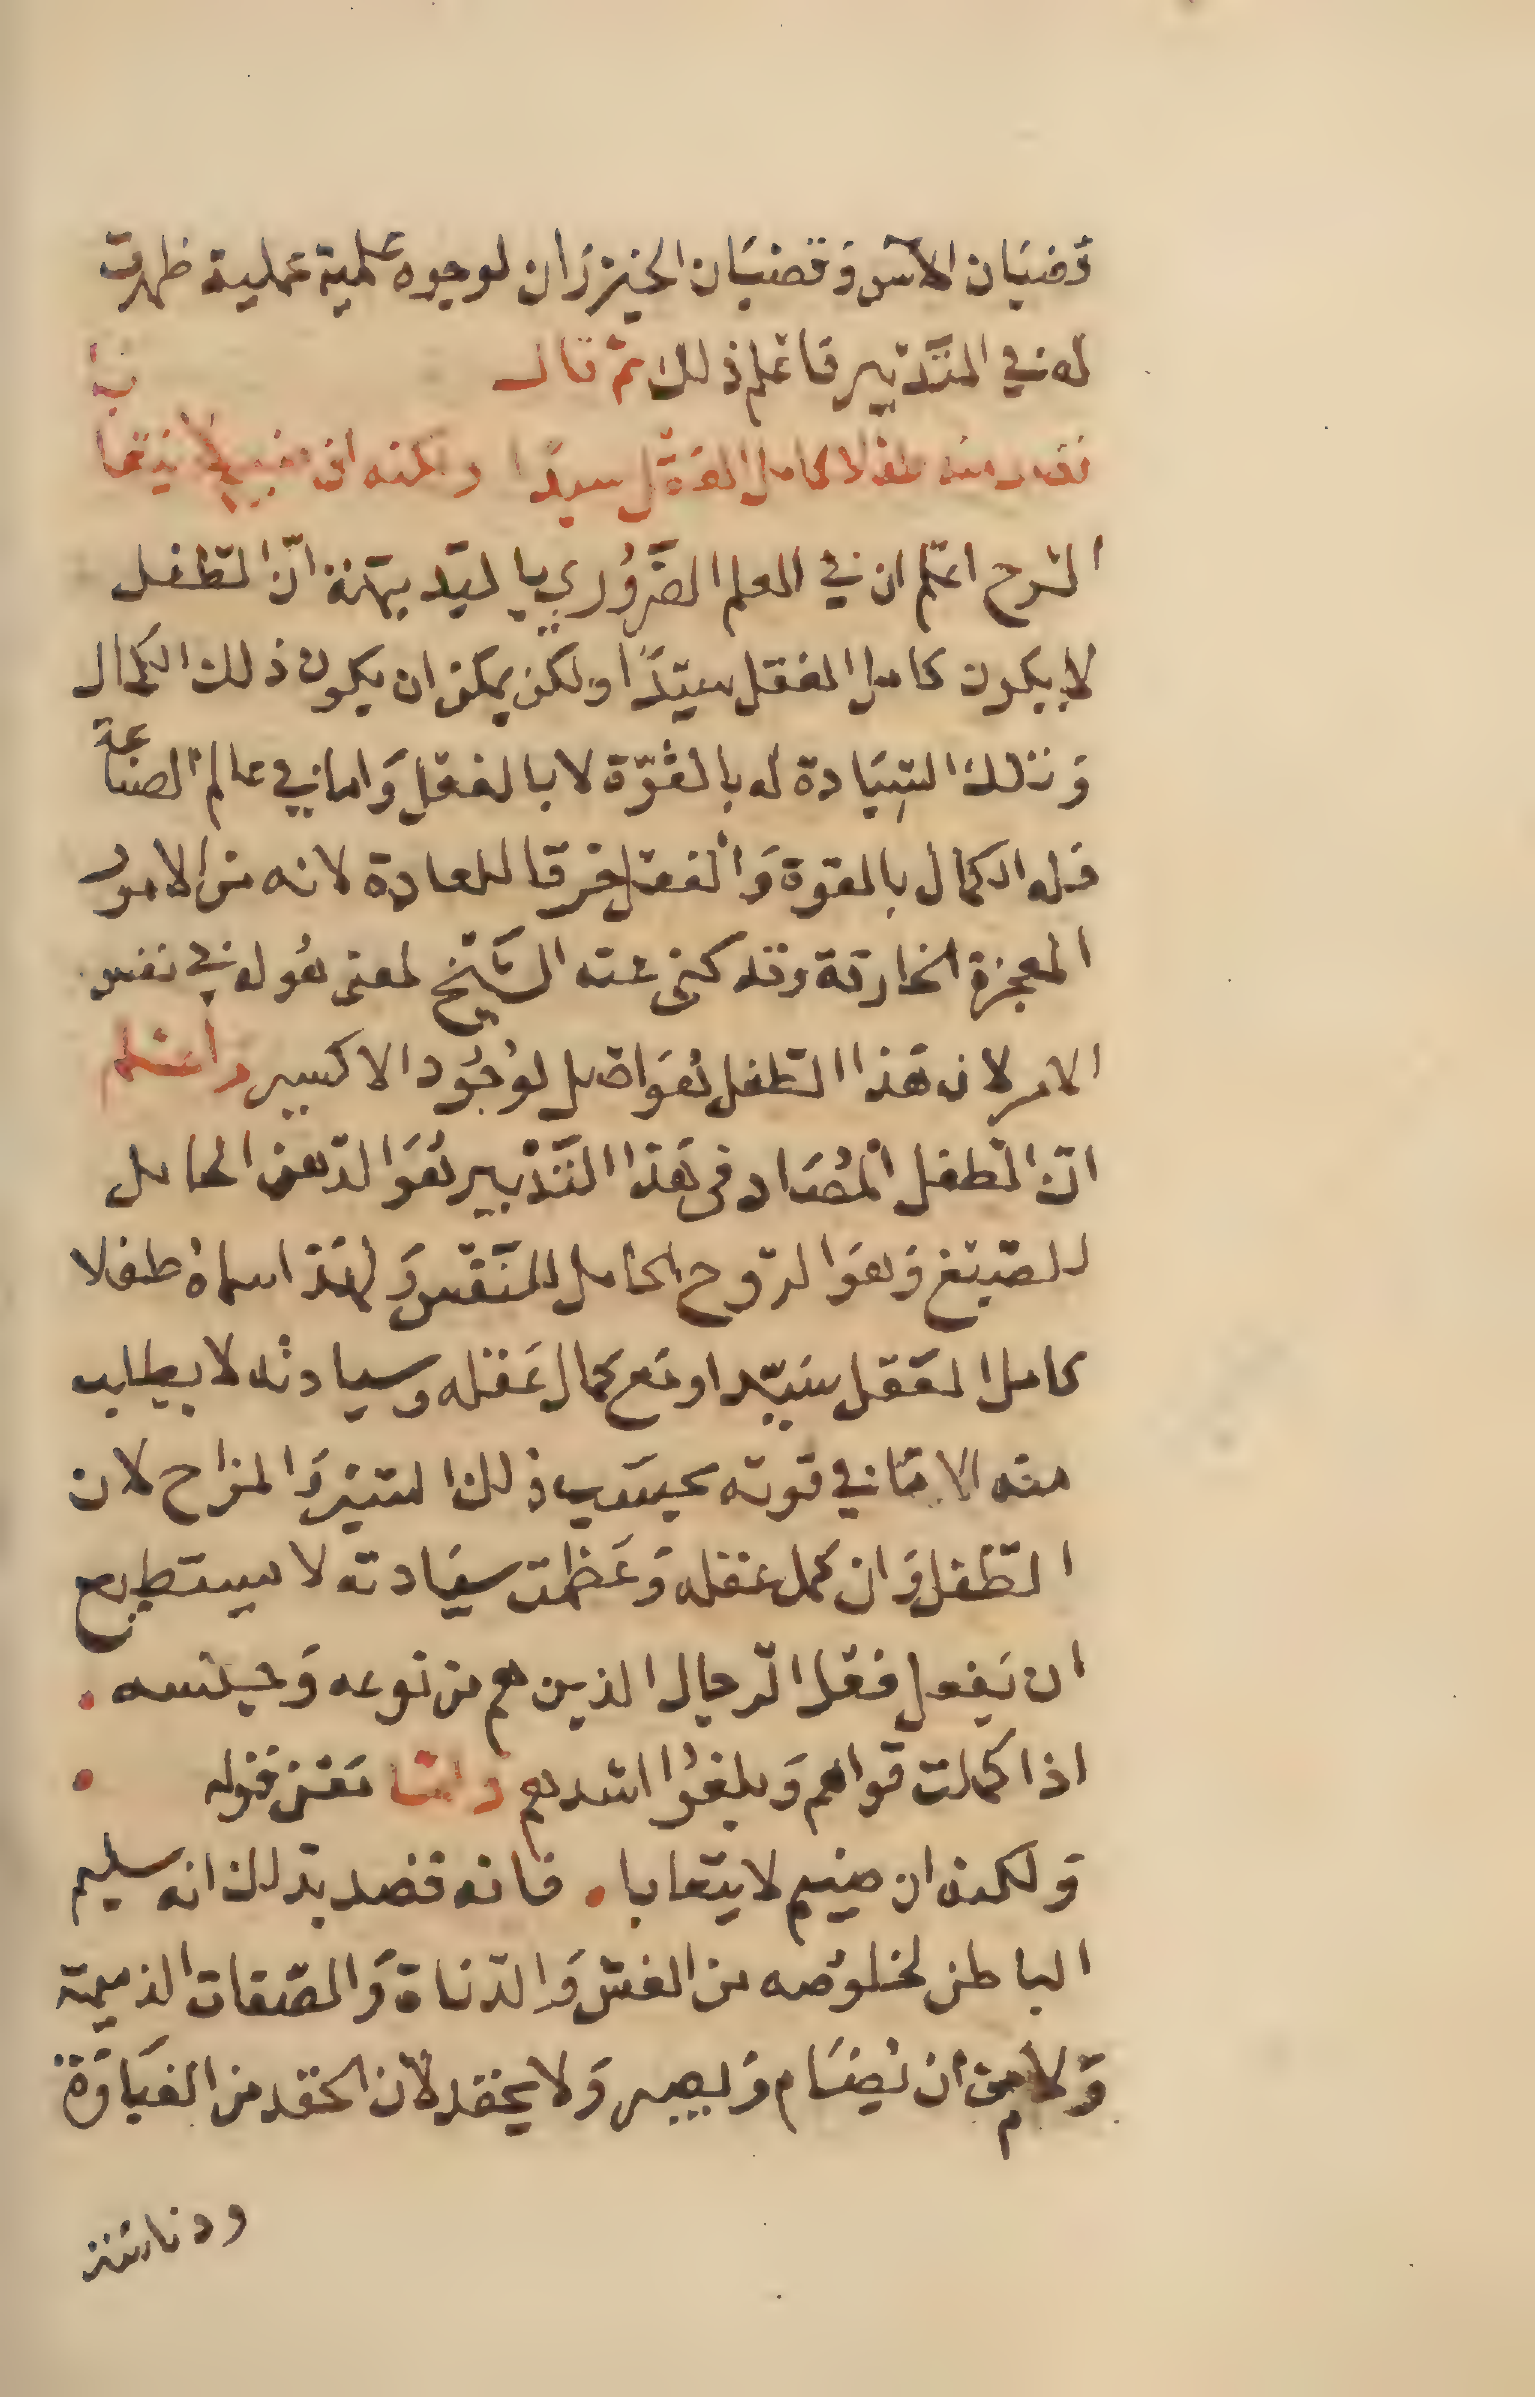 قضبان الآس وقضبان الخيزران لوجوه علمية عملية ظهرت
له في التدبير فاعلم ذلك ثم قال
طفلا كامل العقل سيدا ولكنه ان ضيم لا يتحابا
الشرح اعلم ان في العلم الضروري بالبديهة ان الطفل
لا يكون كامل العقل سيدا ولكن يمكن ان يكون ذلك الكمال
وتلك السيادة له بالقوة لا بالفعل واما في عالم الصناعة
فله الكمال بالقوة والفعل خرقا للعادة لانه من الامور
المعجزة الخارقة وقد كنى عنه الشيخ لمعنى هو له في نفس
الامر لان هذا الطفل هو اصل لوجود الاكسير واعلم
ان الطفل المصاد في هذا التدبير هو الدهن الحامل
للصبغ وهو الروح الحامل للنفس ولهذا سماه طفلا
كامل العقل سيدا ومع كمال عقله وسيادته لا يطلب
منه الا ما في قوته بحسب ذلك السن والمزاج لان
الطفل وان كمل عقله وعظمت سيادته لا يستطيع
ان يفعل فعل الرجال الذين هم من نوعه وجنسه .
اذا كملت قواهم وبلغوا اشدهم واما معنى قوله
ولكنه ان ضيم لا يتحابا . فانه قصد بذلك انه سليم
الباطن لخلوصه من الغش والدناة والصفات الذميمة
ان يضام ويصبر ولا يحقد لان الحقد من الغباوة